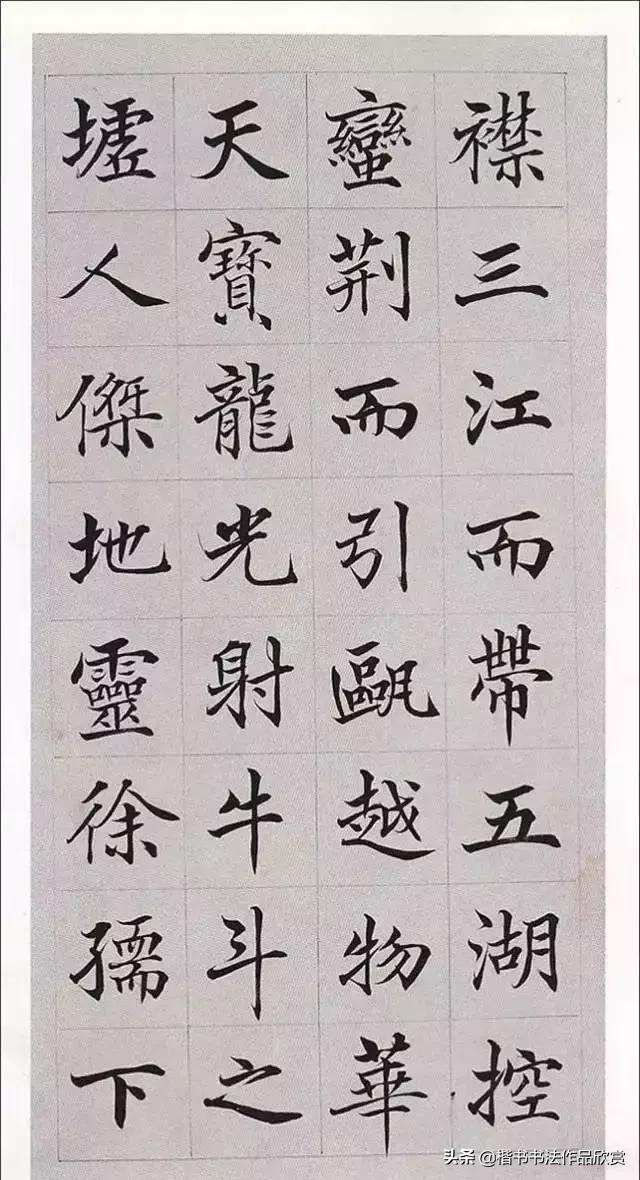 襟三江而帶五湖控
蠻荆而引甌越物華
天寶龍光射牛斗之
墟人傑地靈徐孺下
头条 @楷书书法作品欣赏